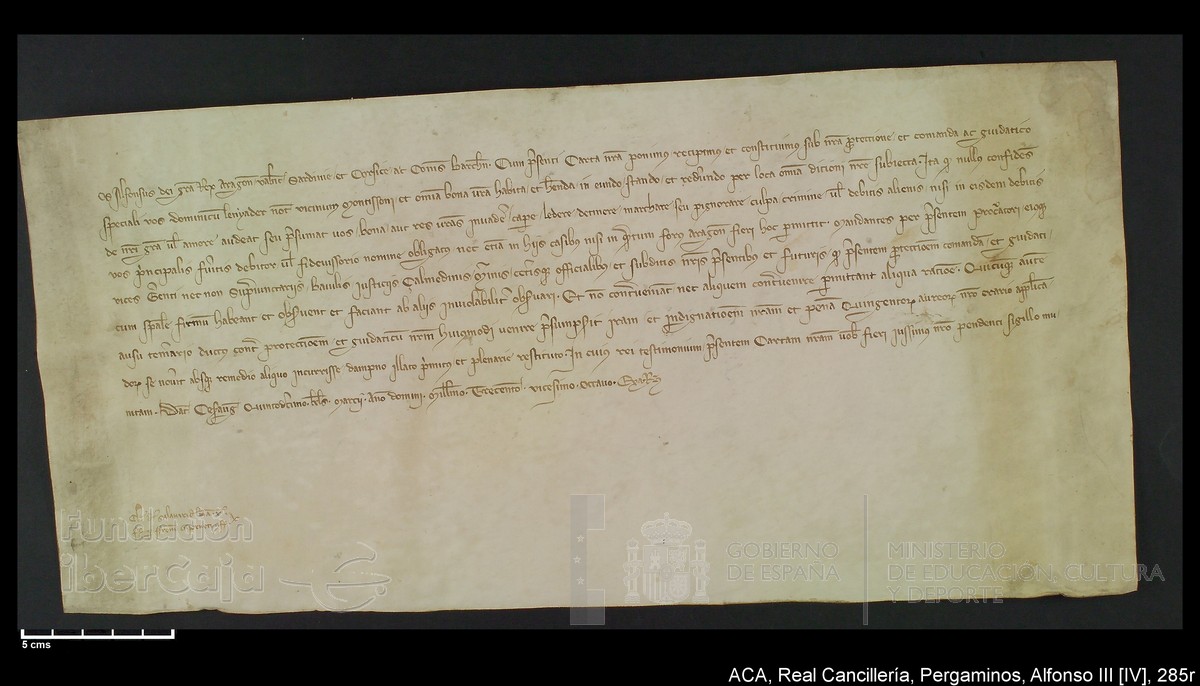 os Alfonsus dei gra Rex Aragon. Valent. Sardinie. et Corsice. ac Comes Barchn. Cum presenti Carta nra ponimus recipimus et constituimus sub nra proteccione. et comanda ac guidatico
speciali vos dominicum lenyader not vicinum Montissoni et omnia bona vra habita et habenda in eundo stando. et redeundo per loca omnia dicioni nre subiecta. Ita q nullo confidens
de nri gra vl amore audeat seu presumat vos. bona. aut res vras invadere. capere. ledere. detinere. marchare seu pignorare. culpa crimine. vl debitis alienis. nisi in eisdem debitis
vos principalis fueritis debitor. vl fideiussorio nomine obligatus nec etiam in hijs casibus nisi in quantum foro Aragon fieri hoc permittit. Mandantes per presentem procuratori eiusq
vices Gerenti nec non Supraiunctarijs Baiulis Iusticijs Calmedinis ceterisq officialibus et subditis nris presentibus et futuris q presentem proteccionem comandam. et guidati
cum speciale firmum habeant et observent et faciant ab alijs inviolabiliter observari. Et non contraveniant nec aliquem contravenire permittant aliqua racione. Quicumq autem
ausu temerario ductus contra proteccionem et guidaticum nrm huiusmodi venire presumpserit iram. et indignacionem nram et penam Quingentorum aureorum nro erario applican
dorum se noverit absq remedio aliquo incurrisse. dampno illato primitus et plenarie restituto. In cuius rei testimonium presentem Cartam nram vobis fieri iussimus nro pendenti sigillo mu
nitam. Dat Cesaraug Quintodecimo. kls. Marcij. Anno domini. Millesimo. CCCcento. vicesimo. Octavo.
Fundación
iberCaja
GOBIERNO
DE ESPAÑA
MINISTERIO
DE EDUCACIÓN, CULTURA
Y DEPORTE
5 cms
ACA, Real Cancillería, Pergaminos, Alfonso III [IV], 285r